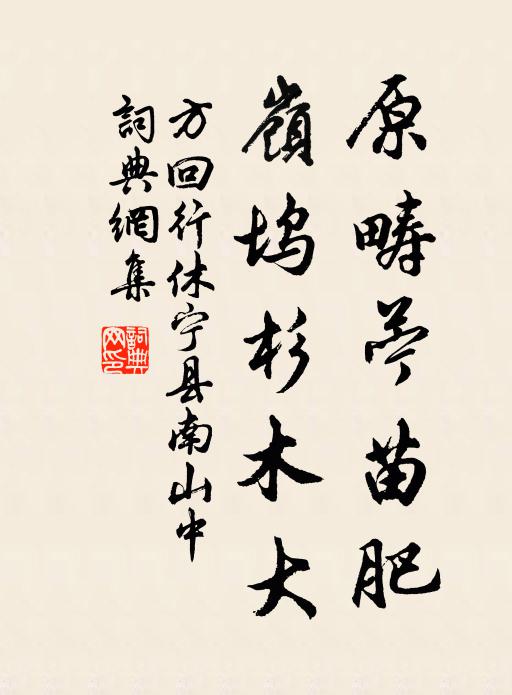 原疇苎苗肥
嶺坞杉木大
方回行休宁县南山中
詞典網集
詞典网印